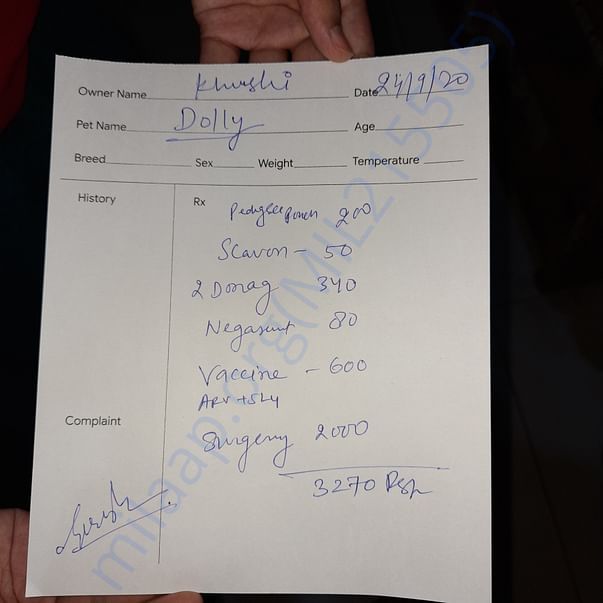 Owner Name Khushi Date 24/9/20
Pet Name Dolly Age
Breed Sex Weight Temperature
History Rx
Pedigree pouch 200
Scavon - 50
2 200 340
Negasunt 80
Vaccine - 600
ARV +
Complaint
Surgery 2000
3270
milaap.org(MIL215505)